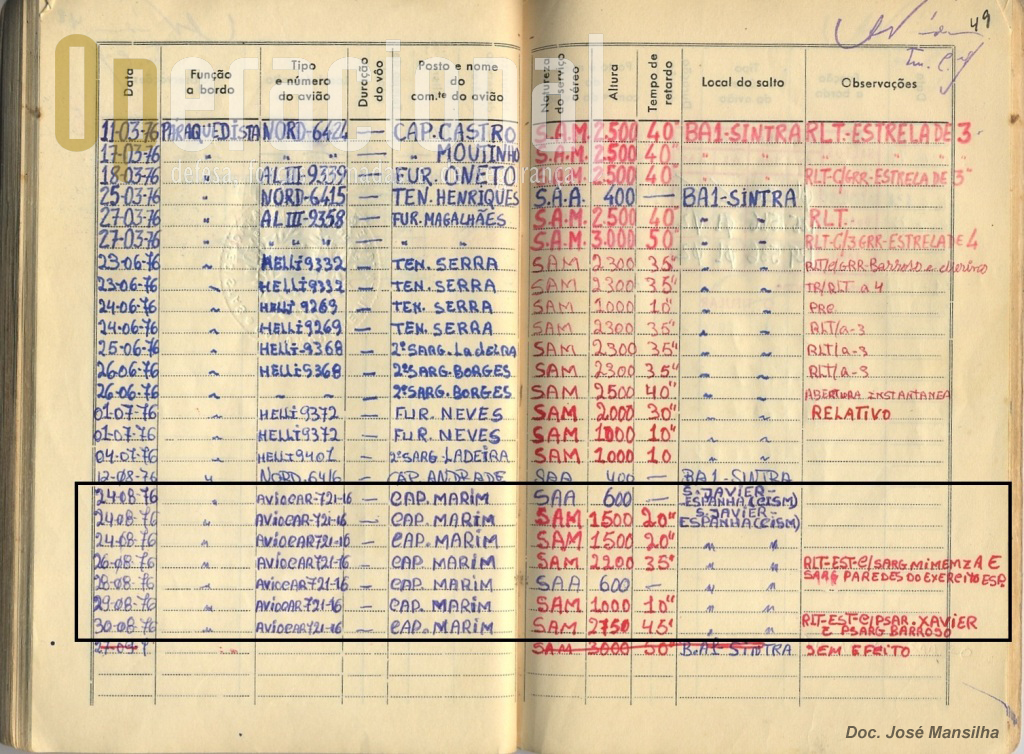 49
Operacional
Data Função a bordo Tipo e número do avião Duração do vôo Posto e nome do com.te do avião Natureza do serviço aéreo Altura Tempo de retardo Local do salto Observações
11-03-76 PARAQUEDISTA NORD-6424 — CAP. CASTRO S.A.M. 2.500 40" BA1-SINTRA RLT-ESTRELA DE 3
17-03-76 " " " — " MOUTINHO S.A.M. 2.500 40" " "
18-03-76 " AL III-9339 — FUR. ONETO S.A.M. 2.500 40" " " RLT-C/GRR-ESTRELA DE 3
25-03-76 " NORD-6415 — TEN. HENRIQUES S.A.A. 400 — BA1-SINTRA
27-03-76 " AL III-9358 — FUR. MAGALHÃES S.A.M. 2.500 40" " " RLT.
27-03-76 " " " " — " " S.A.M. 3.000 50" " " RLT-C/3GRR-ESTRELA DE 4
23-06-76 ~ HELLI 9332 — TEN. SERRA SAM 2300 35" " ~
23-06-76 ~ HELLI 9332 — TEN. SERRA SAM 2300 35" " ~ TR/RLT a 4
24-06-76 ~ HELLI 9269 — TEN. SERRA SAM 1000 10" " ~
24-06-76 ~ HELLI 9269 — TEN. SERRA SAM 2300 35" " ~ RLT/a-3
25-06-76 ~ HELLI-9368 — 2ºSARG. LADEIRA SAM 2300 35" " ~ RLT/a-3
26-06-76 ~ HELLI-9368 — 2ºSARG. BORGES SAM 2300 35" " ~ RLT/a-3
26-06-76 ~ ~ ~ — 2ºSARG. BORGES SAM 2500 40" " ~ ABERTURA INSTANTANEA
01-07-76 ~ HELLI 9372 — FUR. NEVES SAM 2000 30" " ~ RELATIVO
01-07-76 ~ HELLI 9372 — FUR. NEVES SAM 1000 10" ~ ~
04-07-76 ~ HELLI-9401 — 2ºSARG. LADEIRA SAM 1000 10 ~ ~
12-08-76 " NORD. 6416 — CAP. ANDRADE SAA 400 — BA1-SINTRA
24-08-76 " AVIOCAR-721-16 — CAP. MARIM SAA 600 — S. JAVIER-ESPANHA (CISM)
24-08-76 " AVIOCAR-721-16 — CAP. MARIM SAM 1500 20" S. JAVIER-ESPANHA (CISM)
24-08-76 " AVIOCAR 721-16 — CAP. MARIM SAM 1500 20" " "
26-08-76 " AVIOCAR 721-16 — CAP. MARIM SAM 2200 35" " " RLT-EST-C/SARG. MIMENZA E
28-08-76 " AVIOCAR 721-16 — CAP. MARIM SAA 600 — " " SARG PAREDES DO EXERCITO ESP.
29-08-76 " AVIOCAR 721-16 — CAP. MARIM SAM 1000 10" " "
30-08-76 " AVIOCAR 721-16 — CAP. MARIM SAM 2750 45" " " RLT-EST-C/PSAR. XAVIER E PSARG BARROSO
SAM 3000 50" B.A1 SINTRA SEM EFEITO
Doc. José Mansilha